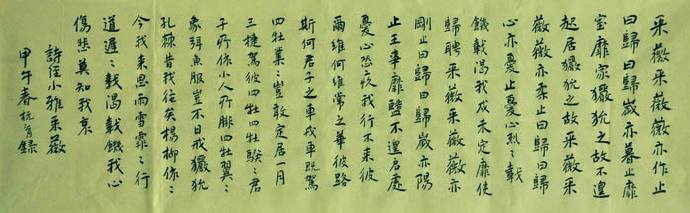 采薇采薇薇亦作止
曰歸曰歸歲亦暮止靡
室靡家玁狁之故不遑
起居玁狁之故采薇采
薇薇亦柔止曰歸曰歸
心亦憂止憂心烈〻載
饑載渴我戍未定靡使
歸聘采薇采薇薇亦
剛止曰歸曰歸歲亦陽
止王事靡盬不遑启處
憂心孔疚我行不来彼
爾維何維常之華彼路
斯何君子之車戎車既駕
四牡業〻豈敢定居一月
三捷駕彼四牡四牡騤〻君
子所依小人所腓四牡翼〻
象弭魚服豈不日戒玁狁
孔棘昔我往矣楊柳依〻
今我来思雨雪霏〻行
道遲〻載渴載饑我心
傷悲莫知我哀
詩经小雅采薇
甲午春 錄